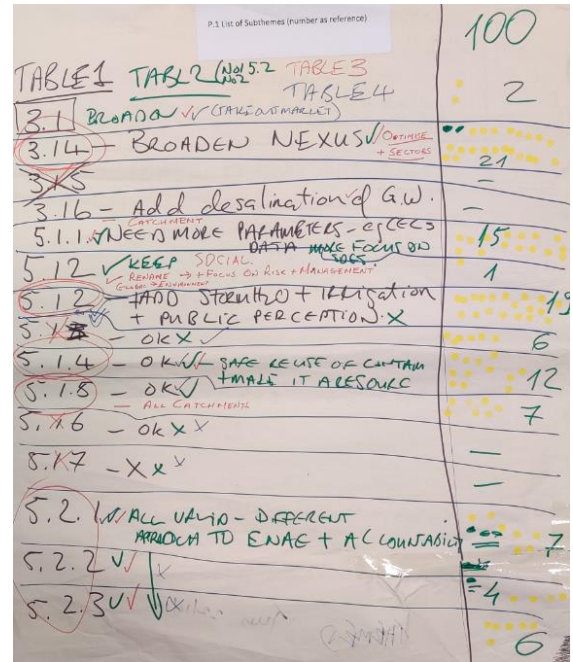 P.1 List of Subthemes (number as reference)
100
TABLE1 TABL2 (No! 5.2 TABLE3
No2
TABLE4 2
3.1 BROADEN ✓✓ (TAKE OUT MARKET)
3.14 - BROADEN NEXUS ✓ / OPTIMISE
+ SECTORS
21
3.15 -
3.16 - Add desalination of G.W. -
CATCHMENT
5.1.1. ✓ NEED MORE PARAMETERS - eg CECs 15
DATA MORE FOCUS ON
SOCIAL.
5.12 ✓ KEEP 1
RENAME → + FOCUS ON RISK + MANAGEMENT
5.12 - +ADD STORMH2O + IRRIGATION 19
+ PUBLIC PERCEPTION. X
- OK X ✓ 6
5.1.4 - OK ✓✓ SAFE REUSE OF CONTAM 12
+ MAKE IT A RESOURC
5.1.5 - OK ✓✓ 7
- ALL CATCHMENTS
5.1.6 - OK X X -
5.1.7 - X X X -
5.2.1 ✓✓ ALL VALID - DIFFERENT
APPROACH TO + ACCOUNTABILI 7
5.2.2 ✓✓
4
5.2.3 ✓✓
6